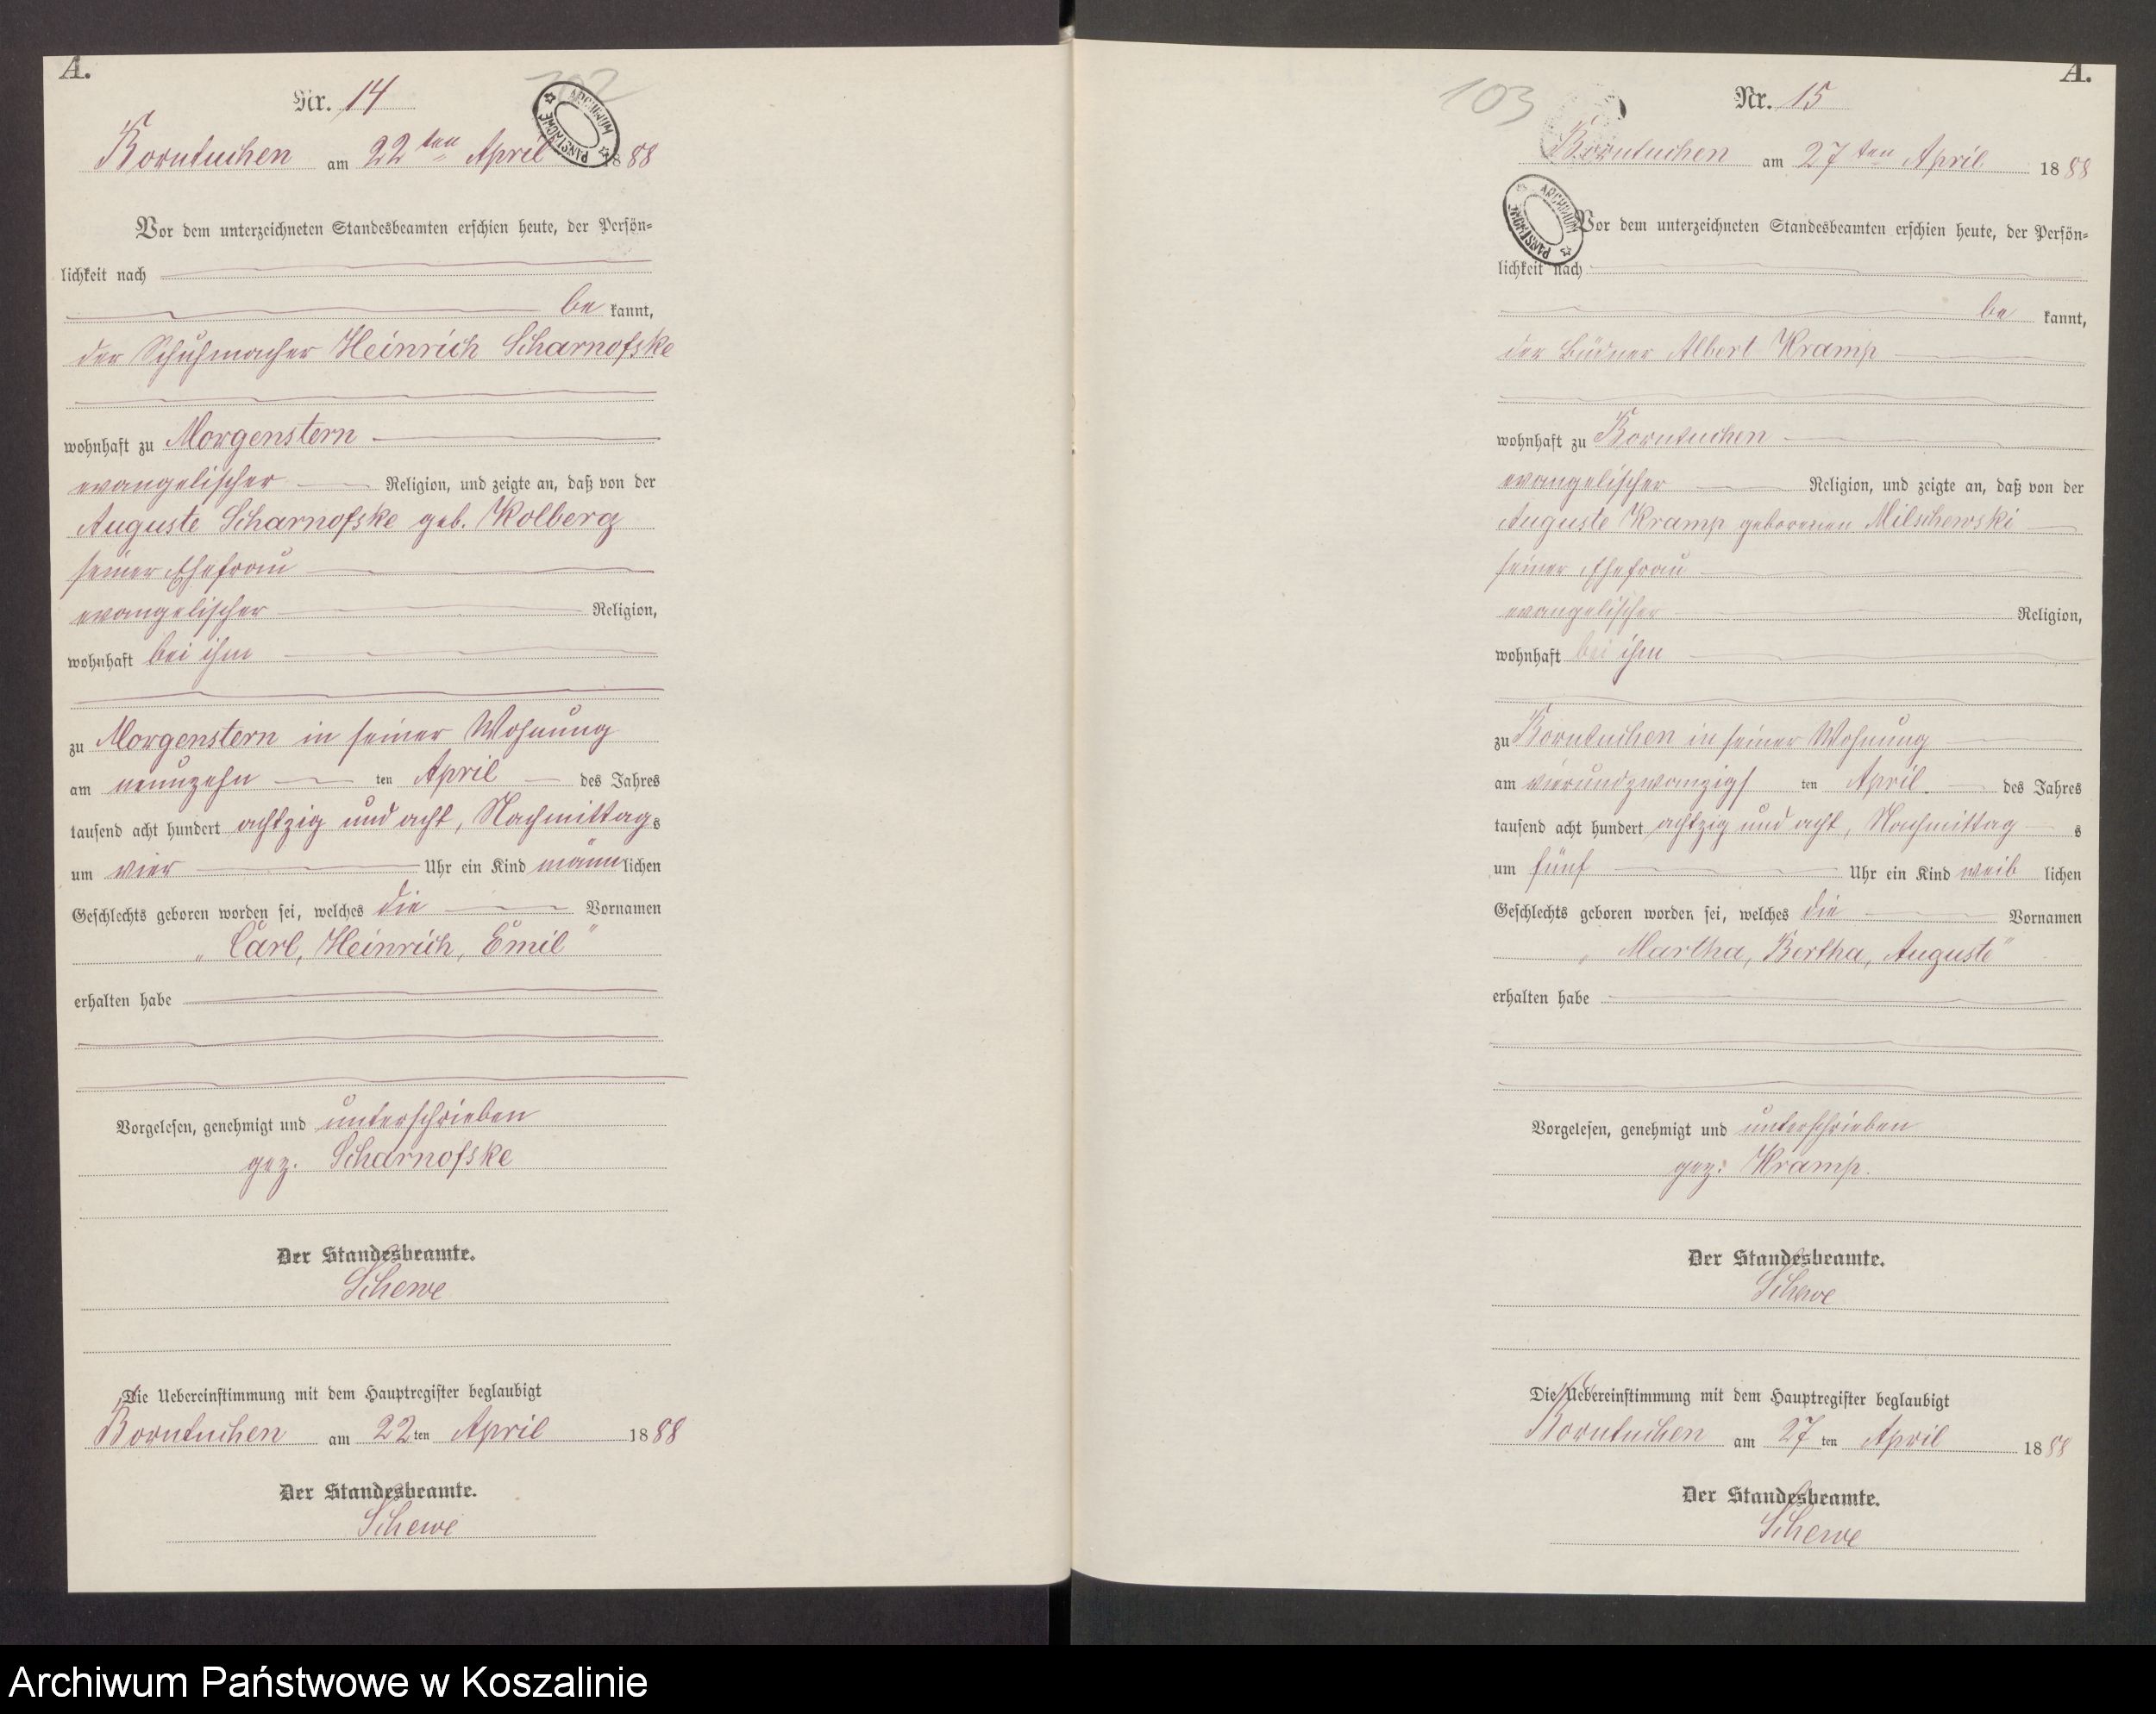 A.
Nr. 14
102
ARCHIWUM PAŃSTWOWE
Borntuchen am 22ten April 1888
Vor dem unterzeichneten Standesbeamten erschien heute, der Persön=
lichkeit nach
be kannt,
der Schuhmacher Heinrich Scharnofske
wohnhaft zu Morgenstern
evangelischer Religion, und zeigte an, daß von der
Auguste Scharnofske geb. Kolberg
seiner Ehefrau
evangelischer Religion,
wohnhaft bei ihm
zu Morgenstern in seiner Wohnung
am neunzehn ten April des Jahres
tausend acht hundert achtzig und acht, Nachmittags
um vier Uhr ein Kind männlichen
Geschlechts geboren worden sei, welches die Vornamen
„Carl, Heinrich, Emil"
erhalten habe
Vorgelesen, genehmigt und unterschrieben
gez. Scharnofske
Der Standesbeamte.
Schewe
Die Uebereinstimmung mit dem Hauptregister beglaubigt
Borntuchen am 22ten April 1888
Der Standesbeamte.
Schewe
A.
Nr. 15
103
Borntuchen am 27ten April 1888
ARCHIWUM PAŃSTWOWE
Vor dem unterzeichneten Standesbeamten erschien heute, der Persön=
lichkeit nach
be kannt,
der Büdner Albert Kramp
wohnhaft zu Borntuchen
evangelischer Religion, und zeigte an, daß von der
Auguste Kramp geborenen Milschewski
seiner Ehefrau
evangelischer Religion,
wohnhaft bei ihm
zu Borntuchen in seiner Wohnung
am vierundzwanzigs ten April des Jahres
tausend acht hundert achtzig und acht, Nachmittag s
um fünf Uhr ein Kind weib lichen
Geschlechts geboren worden sei, welches die Vornamen
„Martha, Bertha, Auguste"
erhalten habe
Vorgelesen, genehmigt und unterschrieben
gez: Kramp.
Der Standesbeamte.
Schewe
Die Uebereinstimmung mit dem Hauptregister beglaubigt
Borntuchen am 27 ten April 1888
Der Standesbeamte.
Schewe
Archiwum Państwowe w Koszalinie